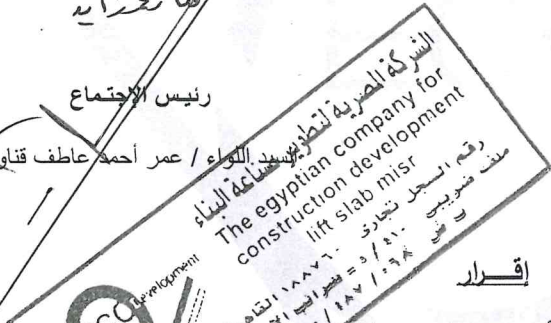 رئيس الإجتماع
السيد اللواء / عمر أحمد عاطف قناو
الشركة المصرية لتطوير صناعة البناء
The egyptian company for
construction development
lift slab misr
رقم السجل تجارى ١٨٨٧٦٠
ملف ضريبى
إقــرار
development